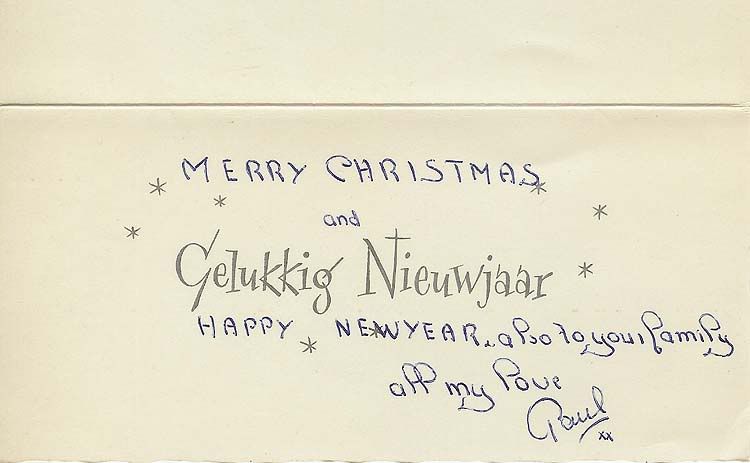 MERRY CHRISTMAS
and
Gelukkig Nieuwjaar
HAPPY NEWYEAR, also to your family
all my love
Paul
xx